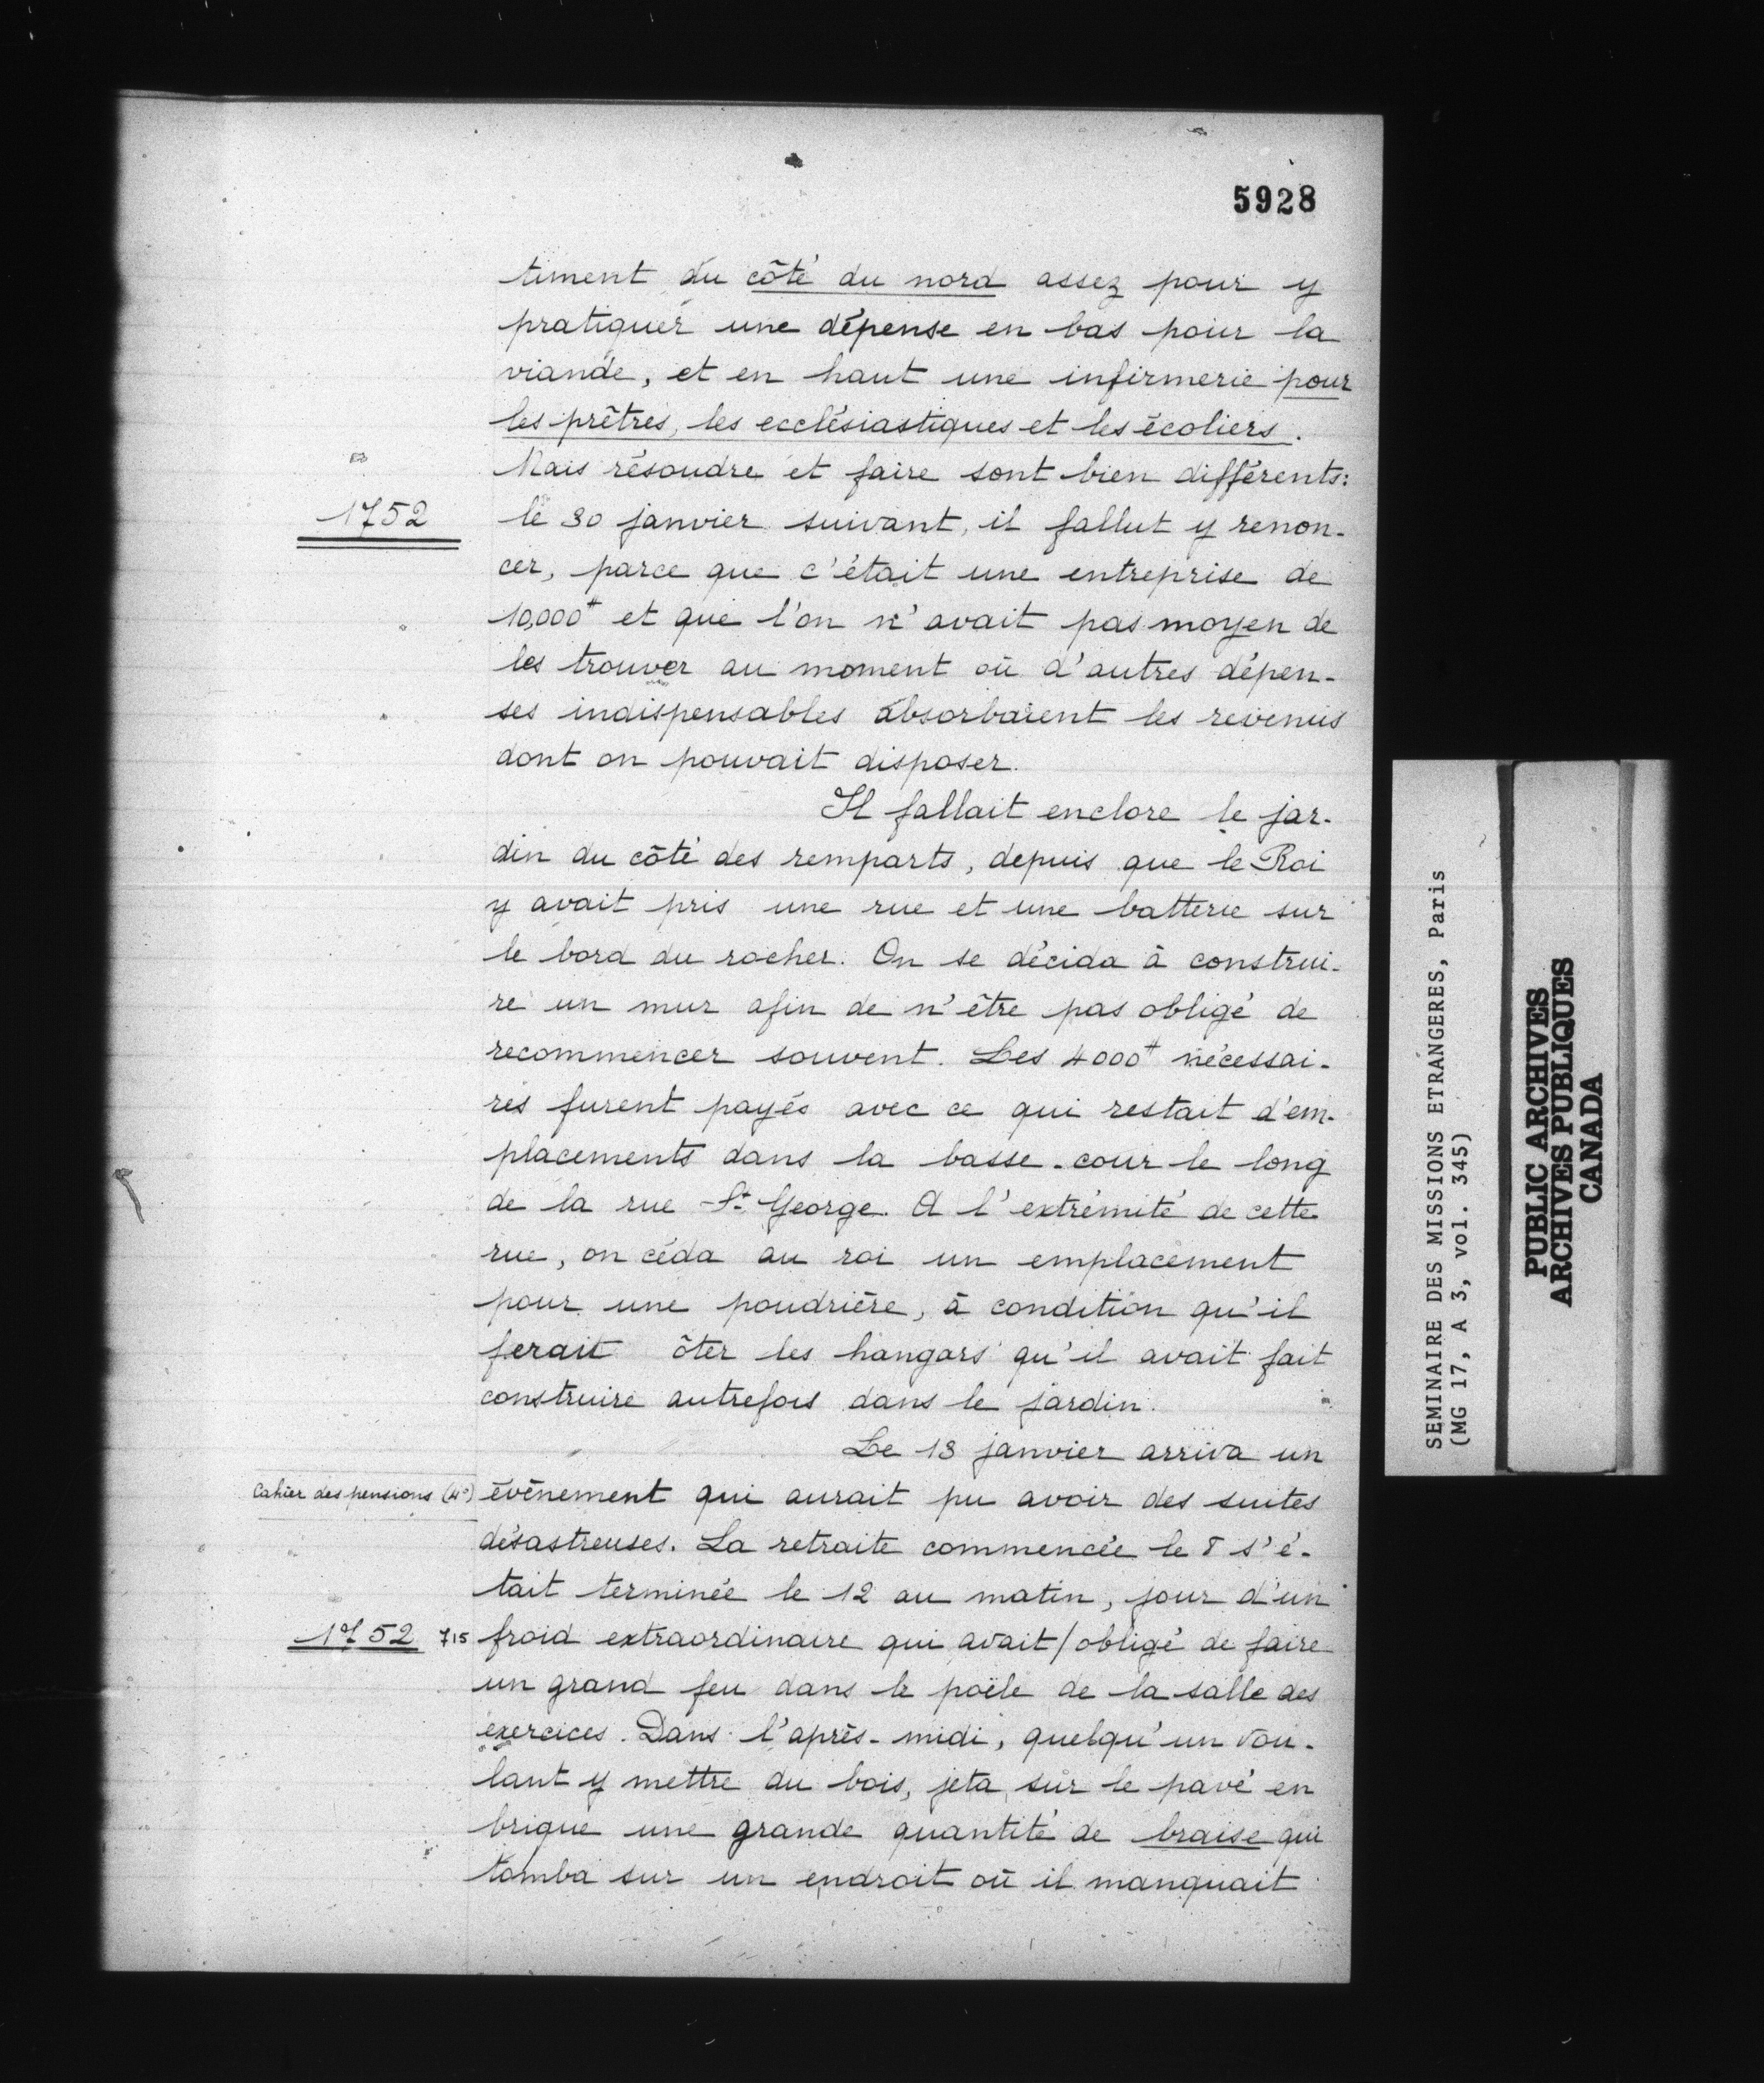 5928
timent du côté du nord assez pour y
pratiquer une dépense en bas pour la
viande, et en haut une infirmerie pour
les prêtres, les ecclésiastiques et les écoliers.
Mais résoudre et faire sont bien différents:
1752
le 30 janvier suivant, il fallut y renon-
cer, parce que c'était une entreprise de
10,000ᵗ et que l'on n'avait pas moyen de
les trouver au moment où d'autres dépen-
ses indispensables absorbaient les revenus
dont on pouvait disposer.
Il fallait enclore le jar-
din du côté des remparts, depuis que le Roi
y avait pris une rue et une batterie sur
le bord du rocher. On se décida à construi-
re un mur afin de n'être pas obligé de
recommencer souvent. Les 4000ᵗ nécessai-
res furent payés avec ce qui restait d'em-
placements dans la basse-cour le long
de la rue St George. A l'extrémité de cette
rue, on céda au roi un emplacement
pour une poudrière, à condition qu'il
ferait ôter les hangars qu'il avait fait
construire autrefois dans le jardin.
Le 13 janvier arriva un
Cahier des pensions (4°)
évènement qui aurait pu avoir des suites
désastreuses. La retraite commencée le 8 s'é-
tait terminée le 12 au matin, jour d'un
1752 715
froid extraordinaire qui avait/obligé de faire
un grand feu dans le poële de la salle des
exercices. Dans l'après-midi, quelqu'un vou-
lant y mettre du bois, jeta sur le pavé en
brique une grande quantité de braise qui
tomba sur un endroit où il manquait
SEMINAIRE DES MISSIONS ETRANGERES, Paris
(MG 17, A 3, vol. 345)
PUBLIC ARCHIVES
ARCHIVES PUBLIQUES
CANADA